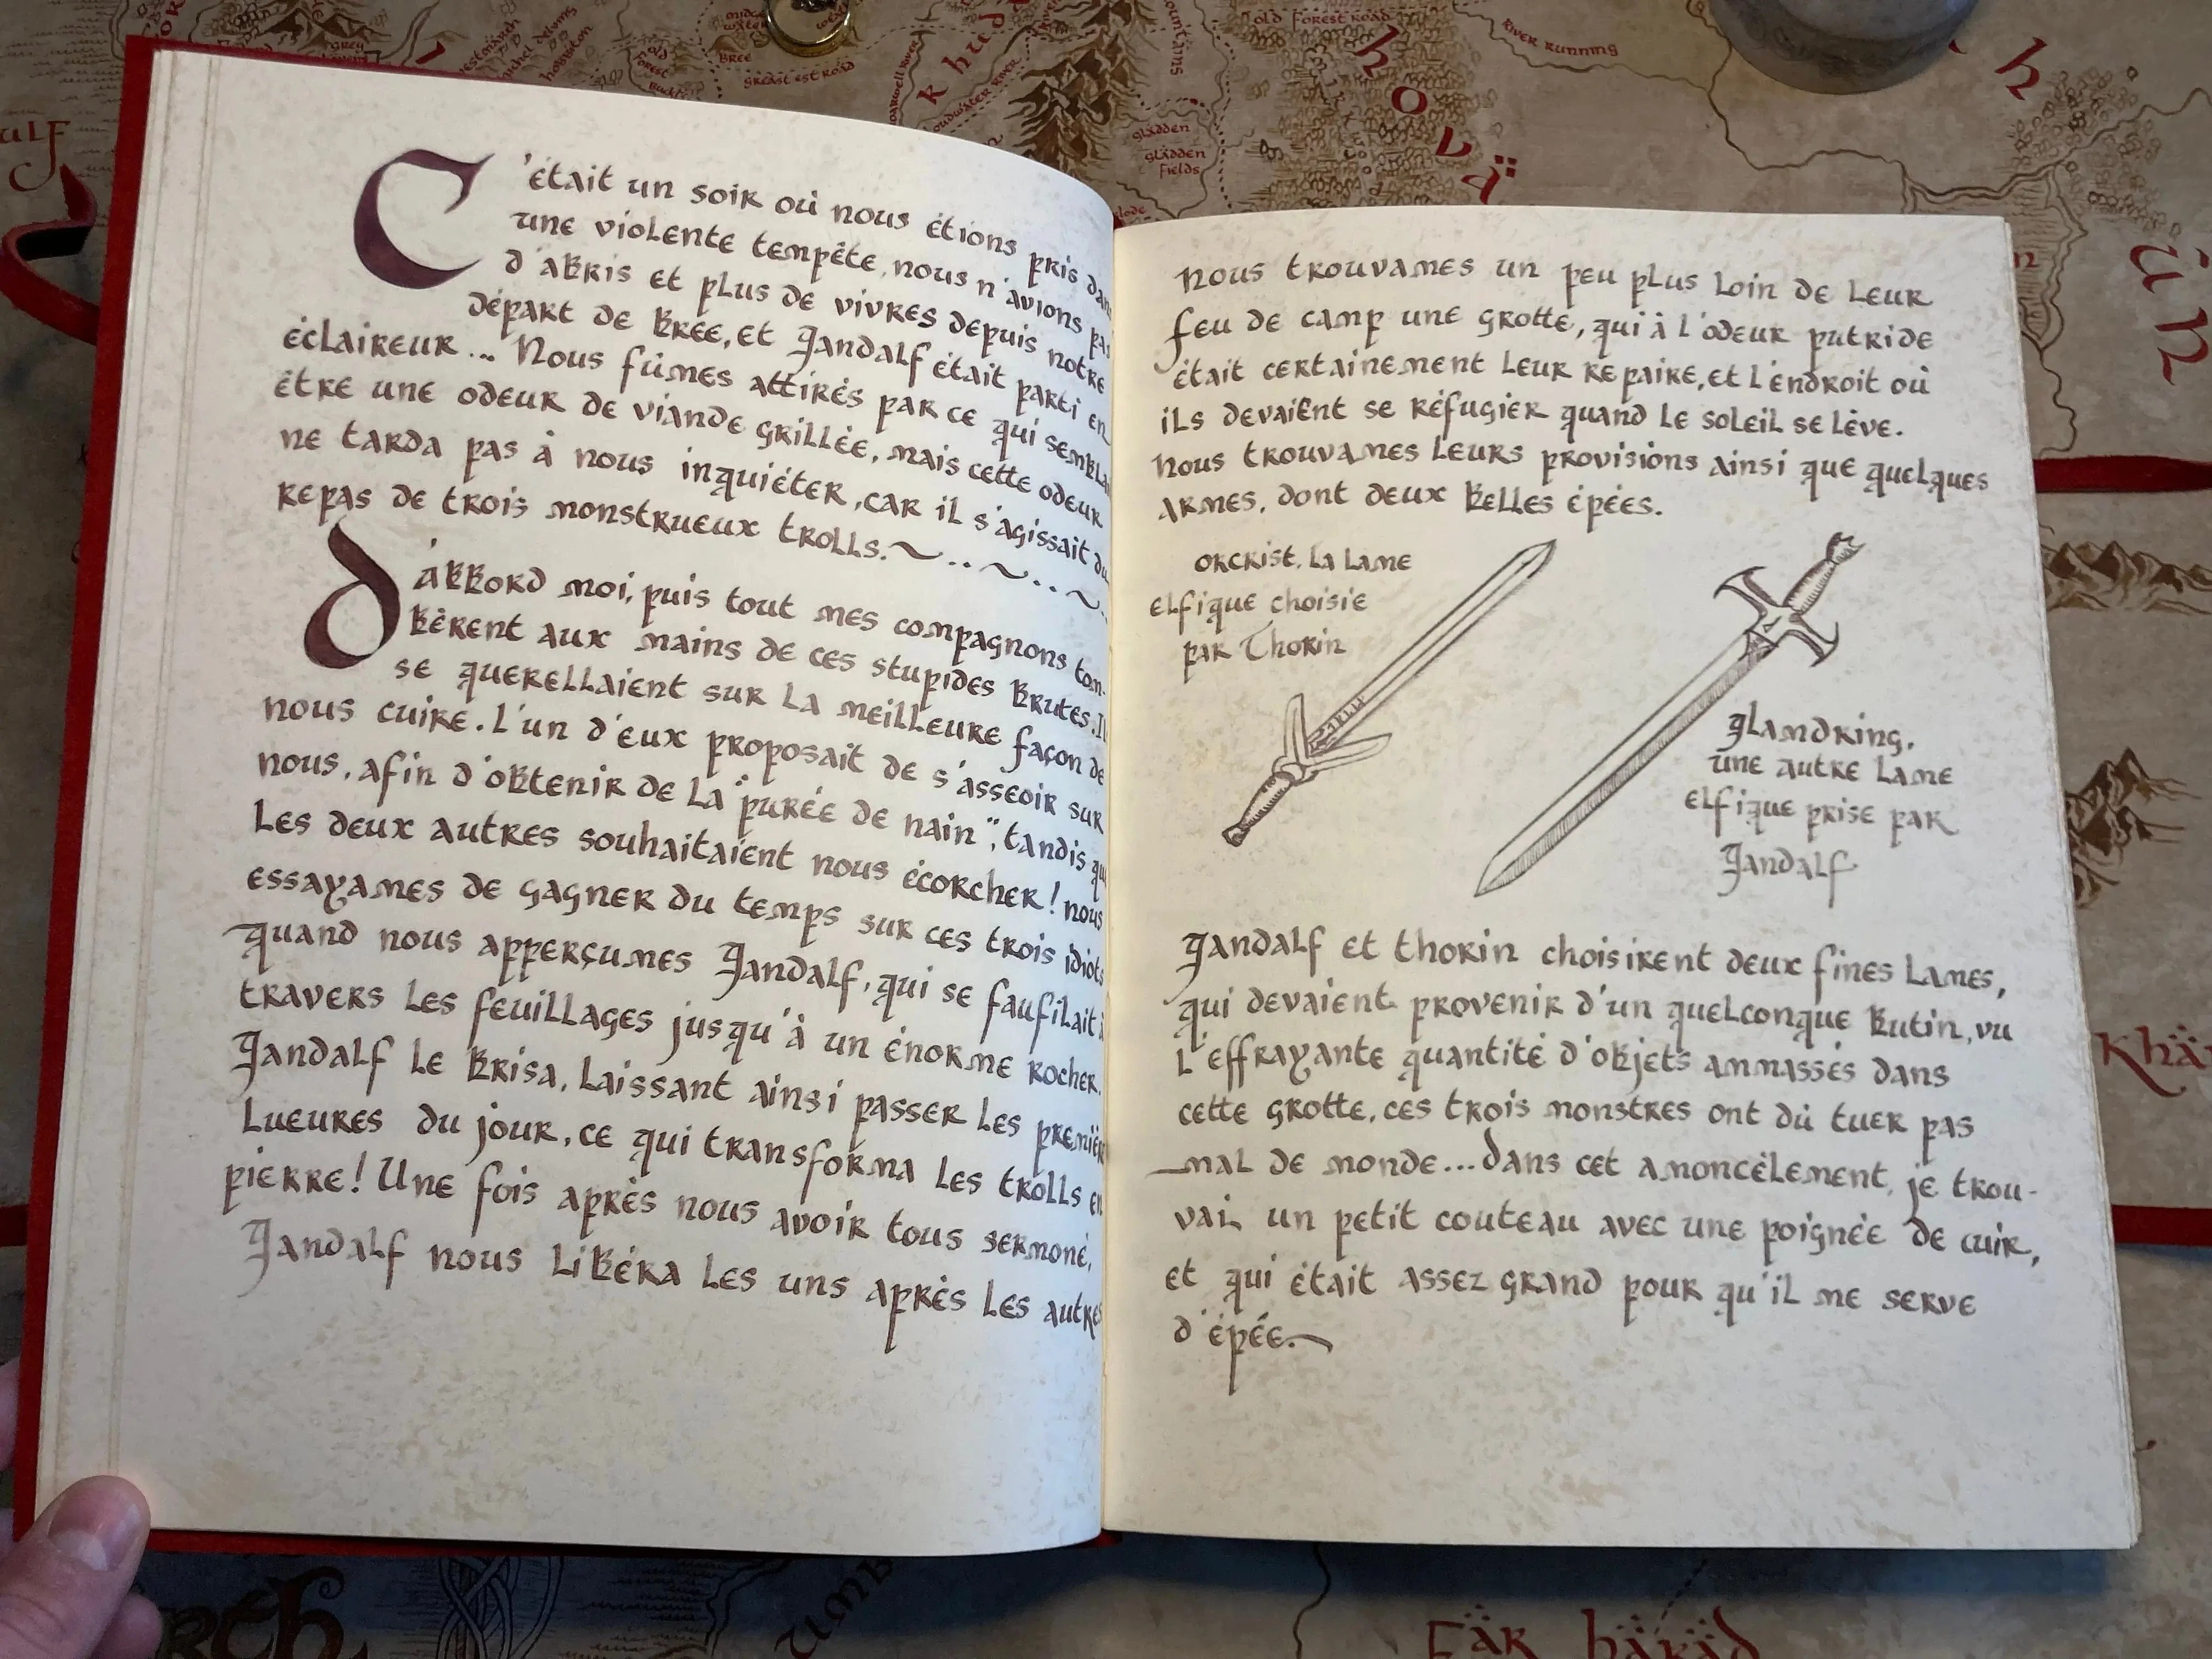 C'était un soir où nous étions pris
une violente tempête, nous n'avions
d'abris et plus de vivres depuis notre
départ de Bree, et Gandalf était parti en
éclaireur... Nous fûmes attirés par ce qui
être une odeur de viande grillée, mais cette odeur
ne tarda pas à nous inquiéter, car il s'agissait
repas de trois monstrueux trolls.~..~..~.
d'abbord moi, puis tout mes compagnons tom-
bèrent aux mains de ces stupides brutes.
se querellaient sur la meilleure façon de
nous cuire. L'un d'eux proposait de s'asseoir sur
nous, afin d'obtenir de la "purée de nain", tandis
les deux autres souhaitaient nous écorcher! nous
essayames de gagner du temps sur ces trois idiots
quand nous apperçumes Gandalf, qui se faufilait
travers les feuillages jusqu'à un énorme rocher.
Gandalf le brisa, laissant ainsi passer les
lueures du jour, ce qui transforma les trolls
pierre! Une fois après nous avoir tous sermoné,
Gandalf nous libéra les uns après les
Nous trouvames un peu plus loin de leur
feu de camp une grotte, qui à l'odeur putride
était certainement leur repaire, et l'endroit où
ils devaient se réfugier quand le soleil se lève.
Nous trouvames leurs provisions ainsi que quelques
armes, dont deux belles épées.
Orcrist, la lame
elfique choisie
par Thorin
Glamdring,
une autre lame
elfique prise par
Gandalf
Gandalf et Thorin choisirent deux fines lames,
qui devaient provenir d'un quelconque butin, vu
l'effrayante quantité d'objets ammassés dans
cette grotte, ces trois monstres ont dû tuer pas
mal de monde... Dans cet amoncèlement, je trou-
vai un petit couteau avec une poignée de cuir,
et qui était assez grand pour qu'il me serve
d'épée.
Old Forest Road
River Running
Bree
Great East Road
Gladden
Gladden
Fields
Mountains
Old
Forest
Grey
Khär
Fär Häräd
Umb